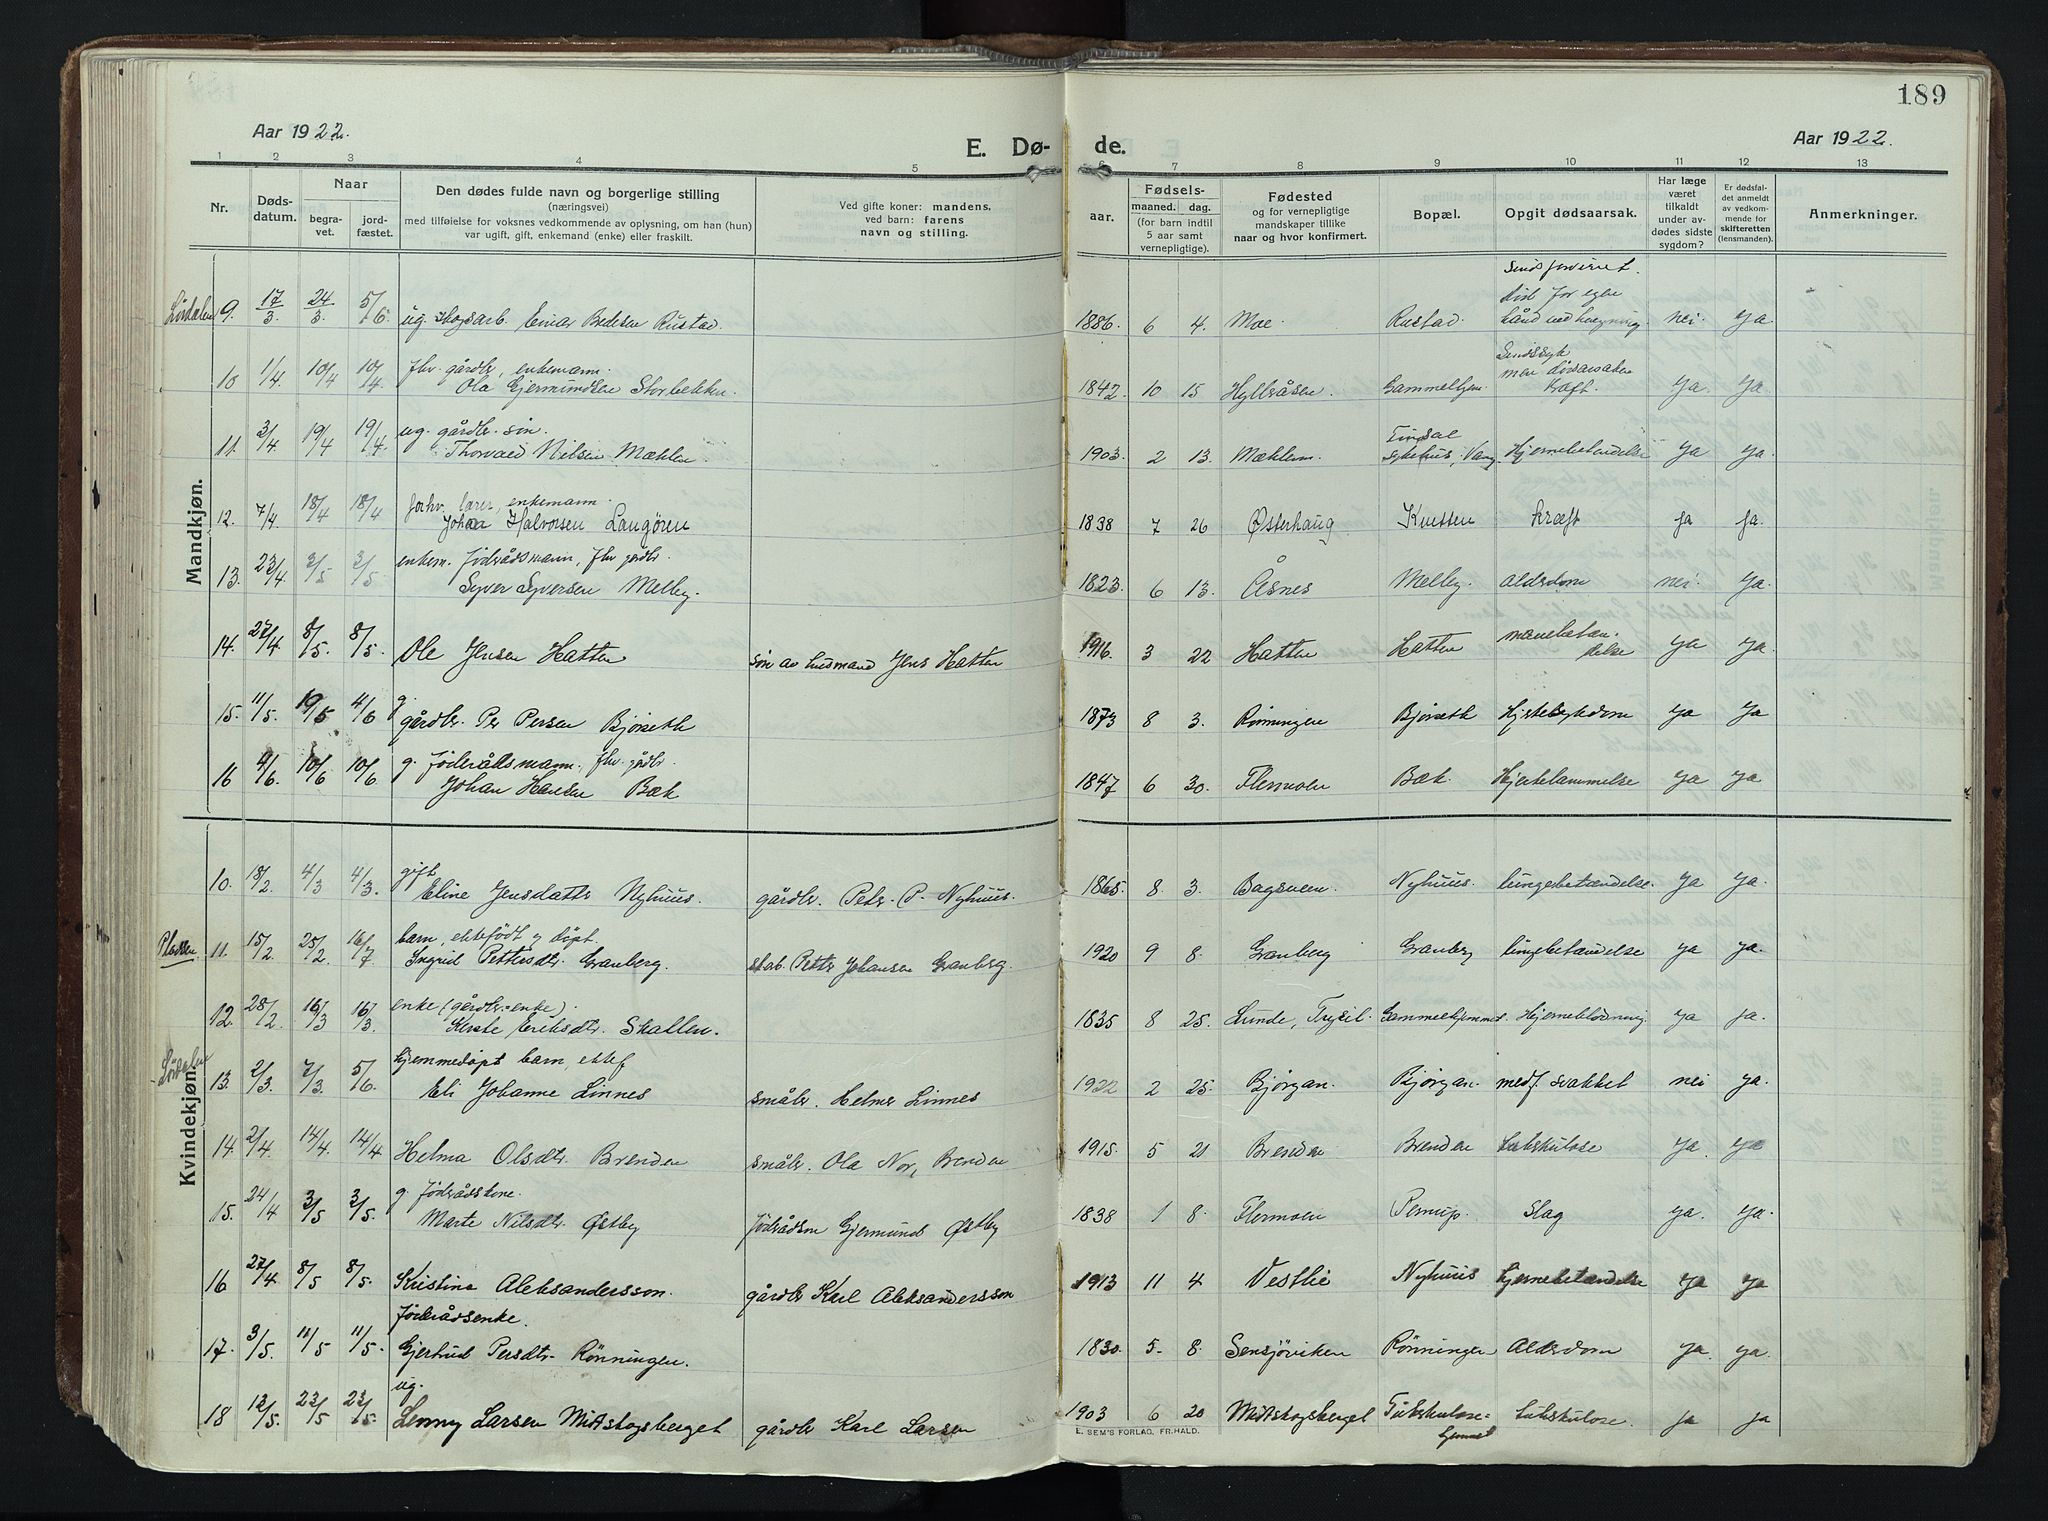 189
Aar 1922.
E. Dø- de.
Aar 1922.
1 2 3 4 5 6 7 8 9 10 11 12 13
Nr.
Døds-
datum.
Naar
begra-
vet.
jord-
fæstet.
Den dødes fulde navn og borgerlige stilling
(næringsvei)
med tilføielse for voksnes vedkommende av oplysning, om han (hun)
var ugift, gift, enkemand (enke) eller fraskilt.
Ved gifte koner: mandens,
ved barn: farens
navn og stilling.
Fødsels-
aar. maaned. dag.
(for barn indtil
5 aar samt
vernepligtige).
Fødested
og for vernepligtige
mandskaper tillike
naar og hvor konfirmert.
Bopæl.
Opgit dødsaarsak.
Har læge
været
tilkaldt
under av-
dødes sidste
sygdom?
Er dødsfal-
det anmeldt
av vedkom-
mende for
skifteretten
(lensmanden).
Anmerkninger.
Mandkjøn.
Sindsforvirret.
død for egen
9. 17/3. 24/3. 5/6. ug. skogsarb. Einar Rustad. 1886. 6 4. Moe. Rustad. hånd ved hængning nei. ja.
fhv. gårdbr., enkemann. Sindssyk
10 1/4. 10/4 10/4. Ola Gjermundsen Storbekken. 1842 10 15 Hyllråsen. Gammelhjem. kræft. ja. ja.
ug. gårdbr. søn.
11. 3/4 19/4 19/4. Thorvald Nilsen Mæhlen. 1903. 2 13. Mæhlum. sykehus, Vang. Hjernebetændelse ja ja.
forhv. lærer, enkemann.
12. 7/4. 18/4 18/4 Johan Halvorsen Langøren 1838 7 26 Østerhaug Knetten kræft ja ja.
enkem. föderådsmann, fhv. gårdbr.
13. 23/4 3/5 3/5. Syver Syversen Melby. 1823. 6 13. Åsnes Melby. alderdom nei. ja.
14. 27/4 8/5. 8/5. Ole Jensen Hatten søn av husmand Jens Hatten 1916. 3 22 Hatten Hatten mavebetæn-
delse ja ja.
g.
15. 11/5. 19/5 4/6 gårdbr. Per Persen Bjørseth 1873 8 3. Rønningen Bjørseth Hjertesykdom ja ja
g. föderådsmann, fhv. gårdbr.
16 4/6. 10/6 10/6 Johan Hansen Bæk 1847 6 30. Flermoen Bæk. Hjertelammelse ja ja
Kvindekjøn.
gift
10. 18/2. 4/3 4/3. Eline Jensdatter Nyhuus. gårdbr. Peter P. Nyhuus. 1865. 8. 3. Bagsveen. Nyhuus. lungebetændelse. ja ja.
Pladsen
barn, ektefödt og döpt.
11. 15/2. 25/2. 16/7 Ingrid Pettersdtr. Granberg. Petter Johansen Granberg. 1920 9 8. Granberg Granberg lungebetændelse ja ja.
enke (gårdbr. enke).
12. 28/2. 16/3 16/3. Kerste Eriksdtr. Skallen. 1835 8 25. Lunde, Trysil. Gammelhjemmet. Hjerneblødning ja ja.
hjemmedøpt barn, ektef
13. 2/3. 7/3. 5/6. Eli Johanne Linnes småbr. Helmer Linnes 1922 2 25. Bjørgan. Bjørgan. medf. svakhet nei ja.
14. 2/4. 14/4. 14/4 Helma Olsdtr. Brenden småbr. Ola Brenden 1915. 5 21 Brenden Brenden tuberkulose ja. ja
g. föderådskone.
15. 24/4 3/5 3/5. Marte Nilsdtr. Østby föderådsm Gjermund Østby 1838 1 8. Flermoen Slag ja. ja.
16 27/4 8/5 8/5. Kristina Aleksandersson. gårdbr Karl Aleksandersson 1913 11 4 Vestlie Nyhuus hjernebetændelse ja ja
föderådsenke.
17. 3/5. 11/5 11/5. Gjertrud Persdtr. Rönningen. 1830. 5 8. Sensjøviken Rønningen Alderdom ja. ja.
ug.
18 12/5. 23/5 23/5. Lenny Larsen Midtskogsberget gårdbr Karl Larsen 1903 6 20 Midtskogsberget Tuberkulose-
hjemmet tuberkulose. ja ja
E. SEM'S FORLAG, FR.HALD.